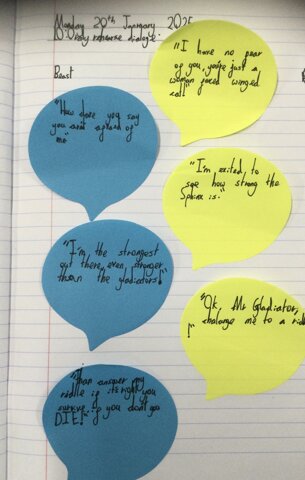 Monday 20th January 2025
rehearse dialogue"
Beast
"I have no pear
of you, you're just a
woman faced winged
cat"
"How dare you say
you aint afraid of
me"
"I'm exited to
see how strong the
Sphinx is."
"I'm the strongest
out there, even stronger
than the gladiators!"
"Ok, Mr Gladiator,
challenge me to a riddl
!"
"Than answer my
riddle if it's right you
survive.. if you don't you
DIE!"